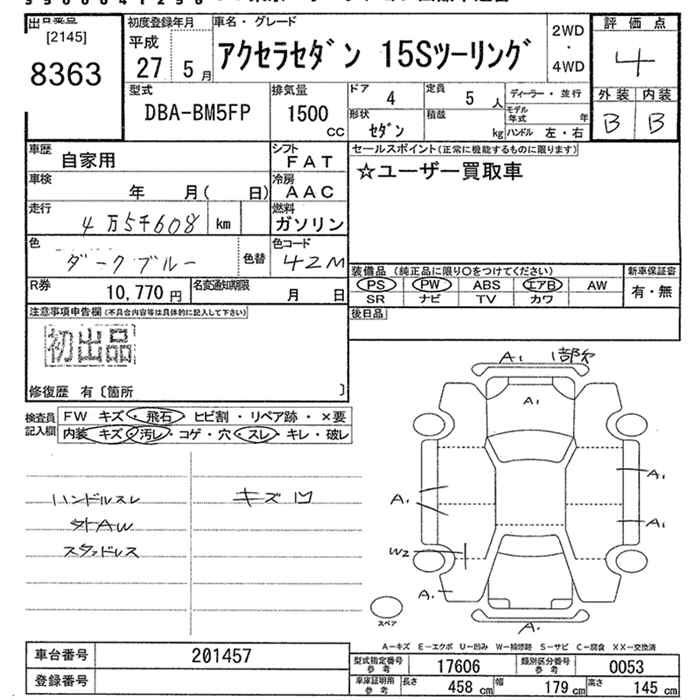 [2145]
8363
初度登録年月
平成
27 5 月
車名・グレード
アクセラセダン 15Sツーリング
2WD
・
4WD
評価点
4
外装 内装
B B
型式
DBA-BM5FP
排気量
1500
CC
ドア
4
定員
5 人
形状
セダン
積載
kg
ディーラー・並行
モデル年式 年
ハンドル 左・右
車歴
自家用
シフト
FAT
車検
年 月( 日)
冷房
AAC
走行
4万5千608 km
燃料
ガソリン
色
ダークブルー
色替
色コード
42M
R券
10,770 円
名変通知期限
月 日
セールスポイント(正常に機能するものに限ります)
☆ユーザー買取車
装備品 (純正品に限り○をつけてください)
PS PW ABS エアB AW
SR ナビ TV カワ
新車保証書
有・無
後日品
注意事項申告欄(不具合内容等は具体的に記入して下さい)
初出品
修復歴 有〔箇所 〕
検査員
記入欄
FW キズ・飛石・ヒビ割・リペア跡・×要
内装 キズ・汚レ・コゲ・穴・スレ・キレ・破レ
ハンドルスレ
キズ凹
外AW
スタッドレス
A1 1部欠
A1
A1
A1
A1
W2
A1
A1
スペア
A−キズ E−エクボ U−凹み W−補修跡 S−サビ C−腐食 XX−交換済
車台番号
201457
登録番号
型式指定番号
参考
17606
類別区分番号
参考
0053
車庫証明用
参考
長さ 458 cm
幅 179 cm
高さ 145 cm